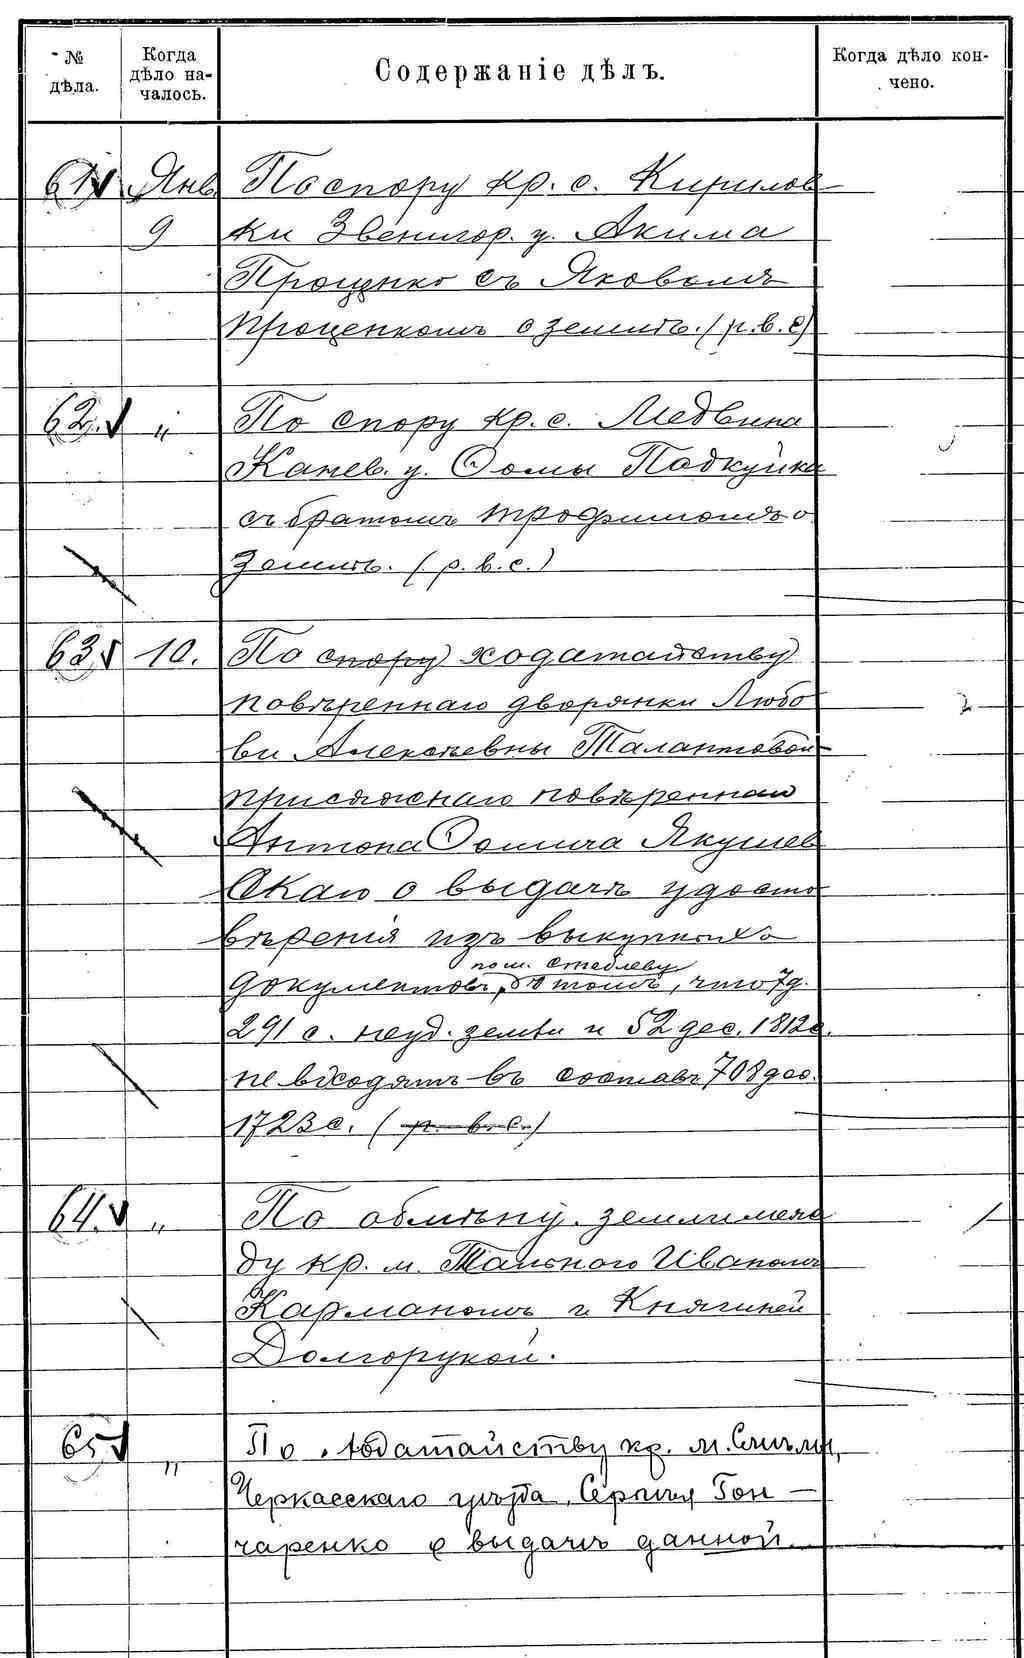 № дѣла.
Когда дѣло на-чалось.
Содержаніе дѣлъ.
Когда дѣло кон-чено.
61 Янв. По спору кр. с. Кирилов-
9 ки Звенигор. у. Акима
Проценко съ Яковомъ
Проценкомъ о землѣ. (р. в. с)
62. „ По спору кр. с. Медвина
Канев. у. Ѳомы Подкуйка
съ братомъ Трофимомъ о
землѣ. (р. в. с.)
63 10. По спору ходатайству
повѣреннаго дворянки Любо
ви Алексѣевны Талантовой
присяжнаго повѣреннаго
Антона Ѳомича Якушев
скаго о выдачѣ удосто
вѣренія изъ выкупныхъ
пом. Стеблеву
документовъ, о томъ, что 7 д.
291 с. неуд. земли и 52 дес. 1812 с.
не входятъ въ составъ 708 дес.
1723 с. (р. в. с.)
64. „ По обмѣну земли
ду кр. м. Тального Иваномъ
Карманомъ и Княгиней
Долгорукой.
65 „ По ходатайству кр. м. Смѣлы,
Черкасскаго уѣзда, Сергѣя Гон-
чаренко о выдачѣ данной.